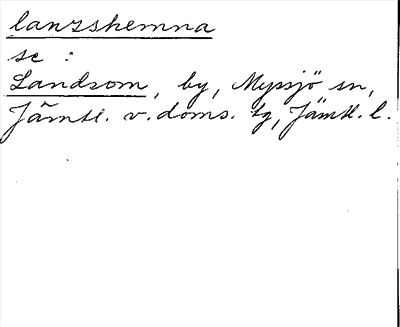 lanzshemna
se :
Landsom, by, Myssjö sn,
Jämtl. v. doms. tg, Jämtl. l.